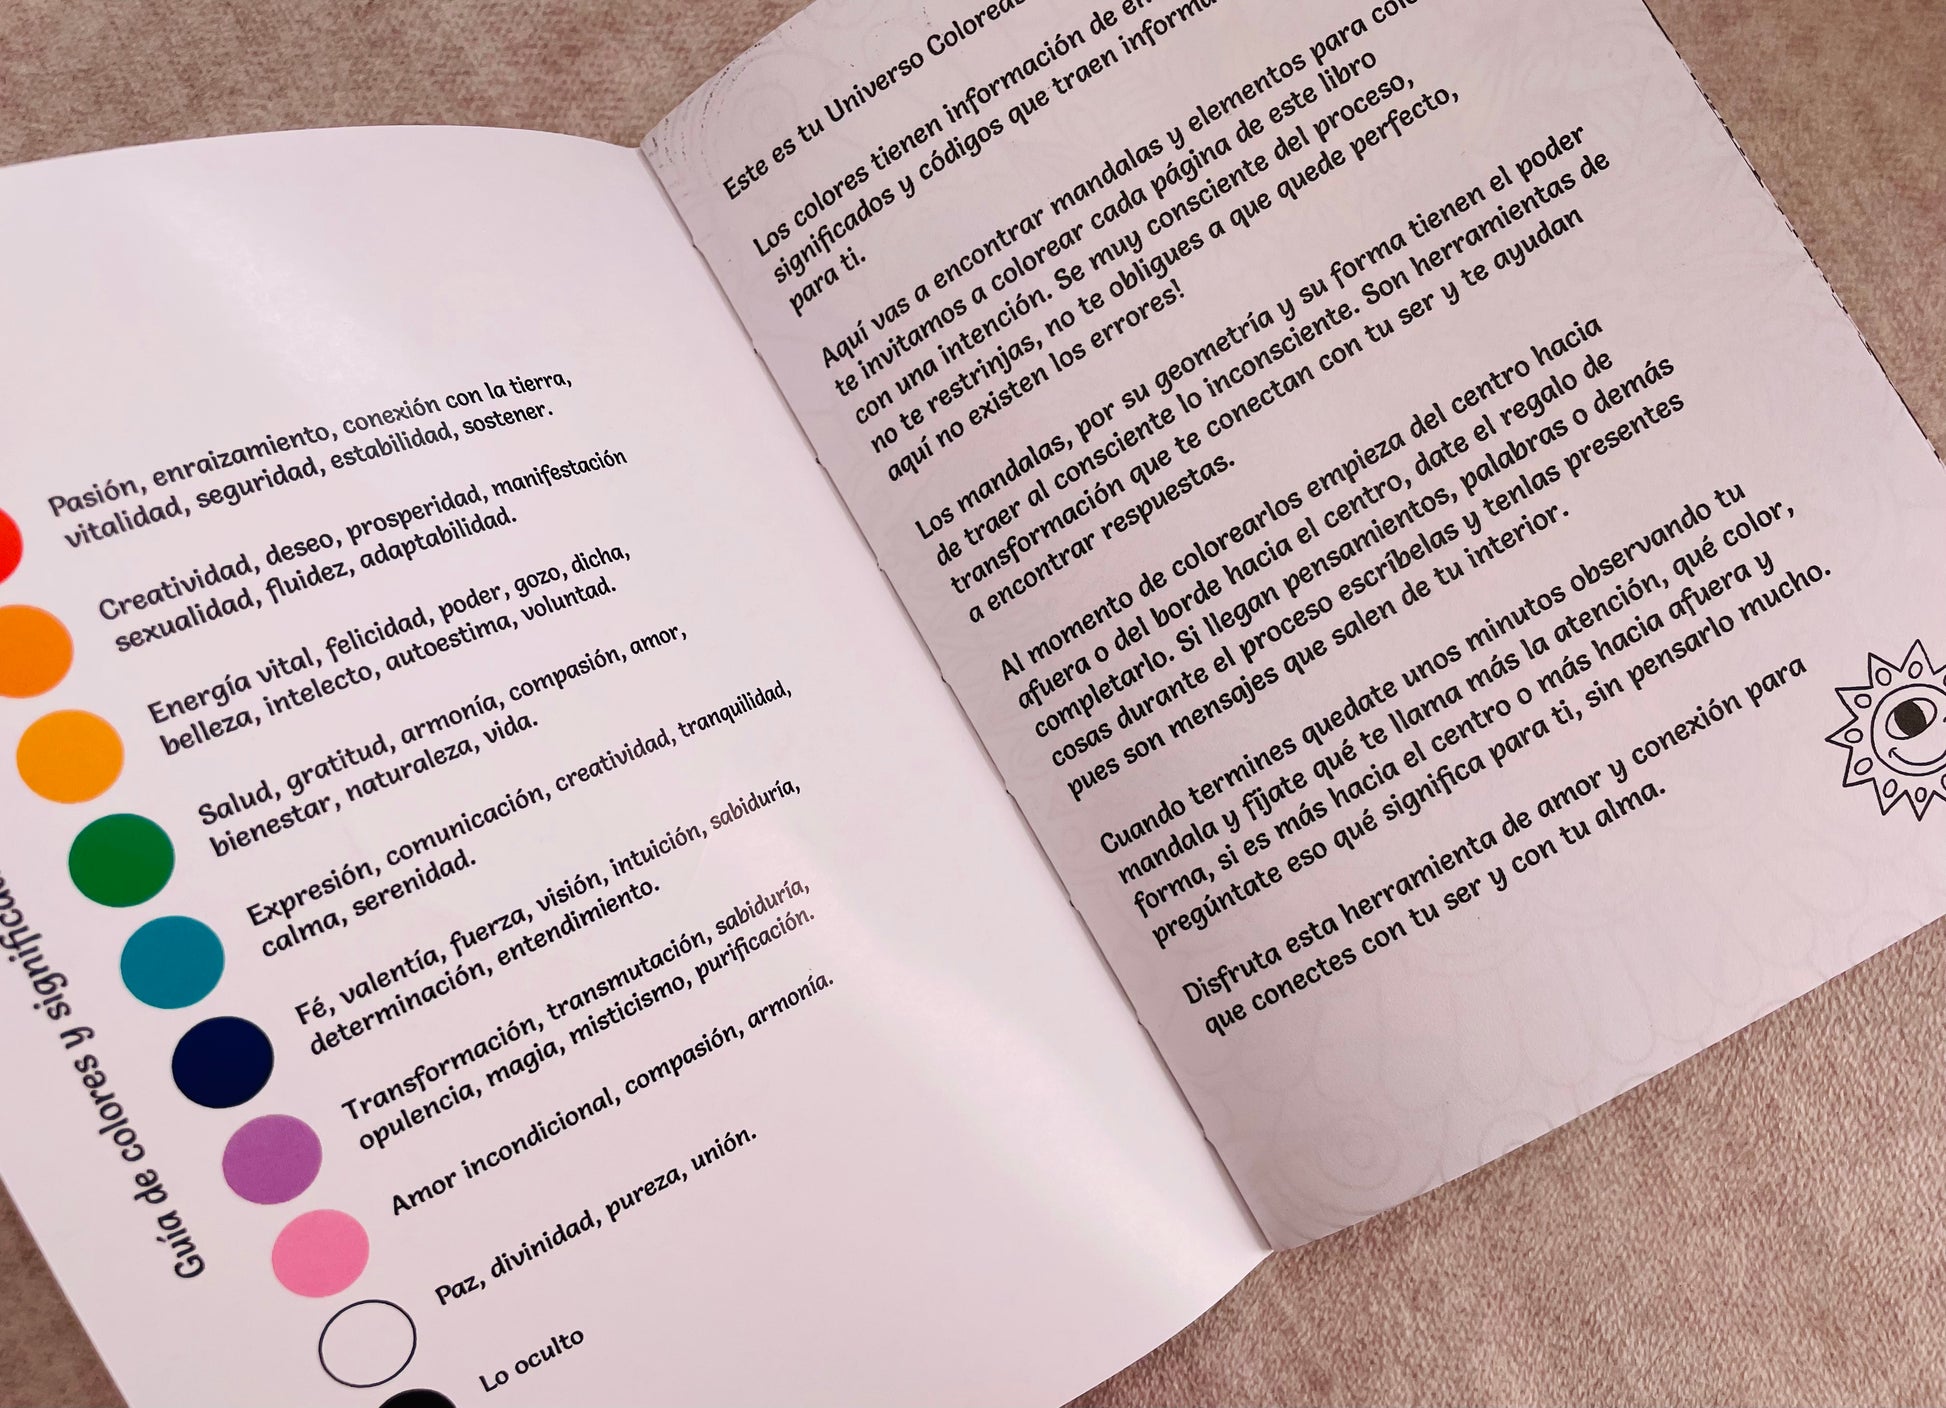 Guía de colores y
Pasión, enraizamiento, conexión con la tierra,
vitalidad, seguridad, estabilidad, sostener.
Creatividad, deseo, prosperidad, manifestación
sexualidad, fluidez, adaptabilidad.
Energía vital, felicidad, poder, gozo, dicha,
belleza, intelecto, autoestima, voluntad.
Salud, gratitud, armonía, compasión, amor,
bienestar, naturaleza, vida.
Expresión, comunicación, creatividad, tranquilidad,
calma, serenidad.
Fé, valentía, fuerza, visión, intuición, sabiduría,
determinación, entendimiento.
Transformación, transmutación, sabiduría,
opulencia, magia, misticismo, purificación.
Amor incondicional, compasión, armonía.
Paz, divinidad, pureza, unión.
Lo oculto
Este es tu Universo
Los colores tienen información de
significados y códigos que traen
para ti.
Aquí vas a encontrar mandalas y elementos para
te invitamos a colorear cada página de este libro
con una intención. Se muy consciente del proceso,
no te restrinjas, no te obligues a que quede perfecto,
aquí no existen los errores!
Los mandalas, por su geometría y su forma tienen el poder
de traer al consciente lo inconsciente. Son herramientas de
transformación que te conectan con tu ser y te ayudan
a encontrar respuestas.
Al momento de colorearlos empieza del centro hacia
afuera o del borde hacia el centro, date el regalo de
completarlo. Si llegan pensamientos, palabras o demás
cosas durante el proceso escríbelas y tenlas presentes
pues son mensajes que salen de tu interior.
Cuando termines quedate unos minutos observando tu
mandala y fíjate qué te llama más la atención, qué color,
forma, si es más hacia el centro o más hacia afuera y
pregúntate eso qué significa para ti, sin pensarlo mucho.
Disfruta esta herramienta de amor y conexión para
que conectes con tu ser y con tu alma.